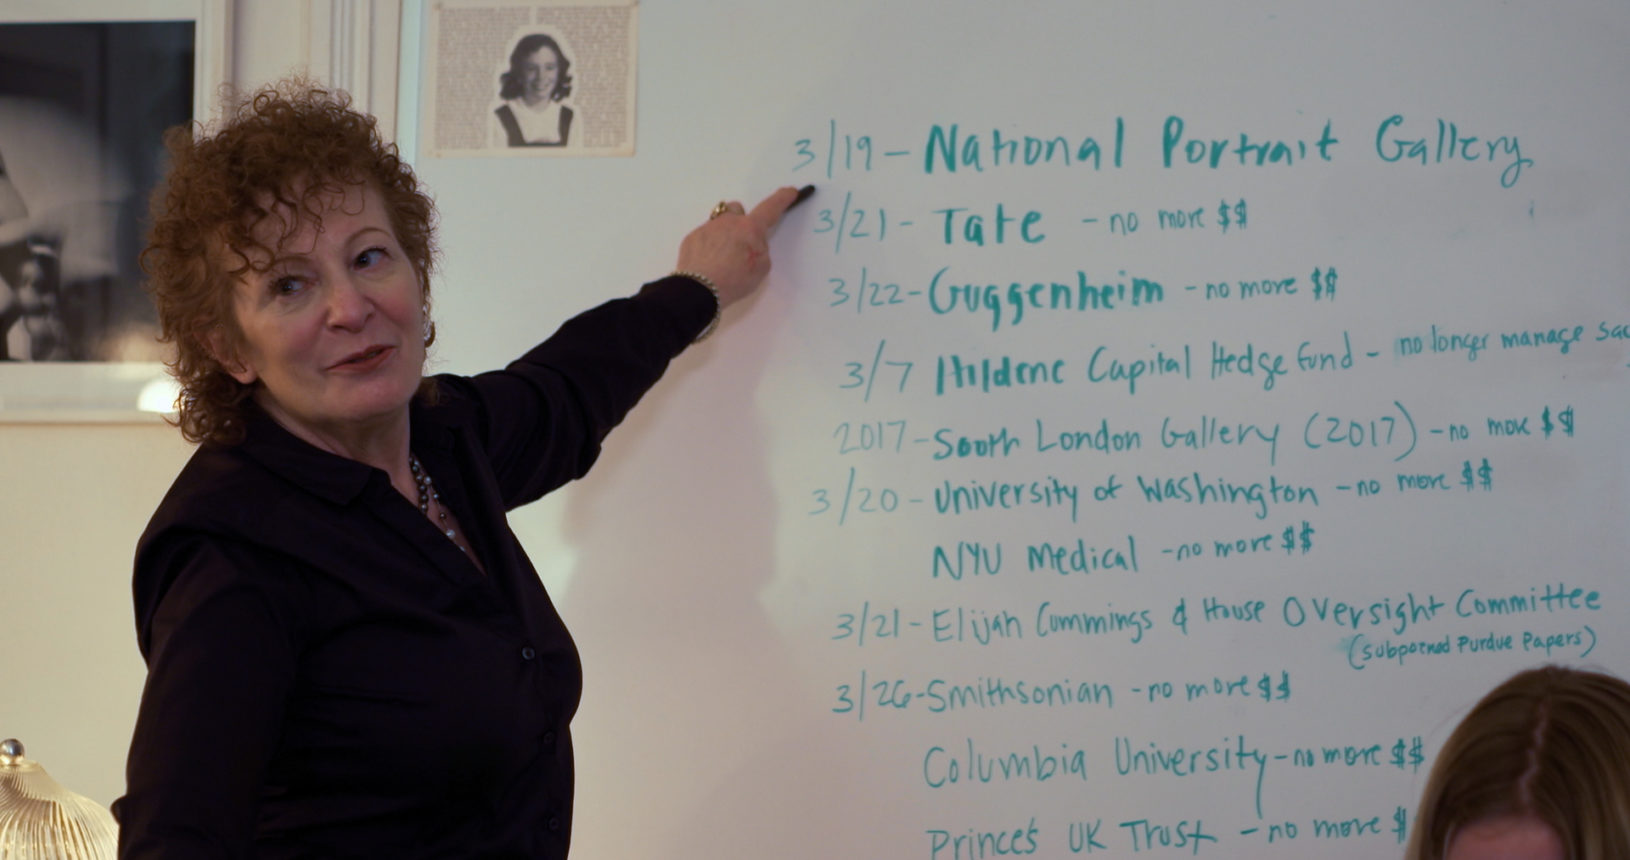 3/19 - National Portrait Gallery
3/21 - Tate - no more $$
3/22 - Guggenheim - no more $$
3/7 Hildene Capital Hedge Fund - no longer manage
2017 - South London Gallery (2017) - no more $$
3/20 - University of Washington - no more $$
NYU Medical - no more $$
3/21 - Elijah Cummings & House Oversight Committee
(subpoenad Purdue Papers)
3/26 - Smithsonian - no more $$
Columbia University - no more $$
Prince's UK Trust - no more $